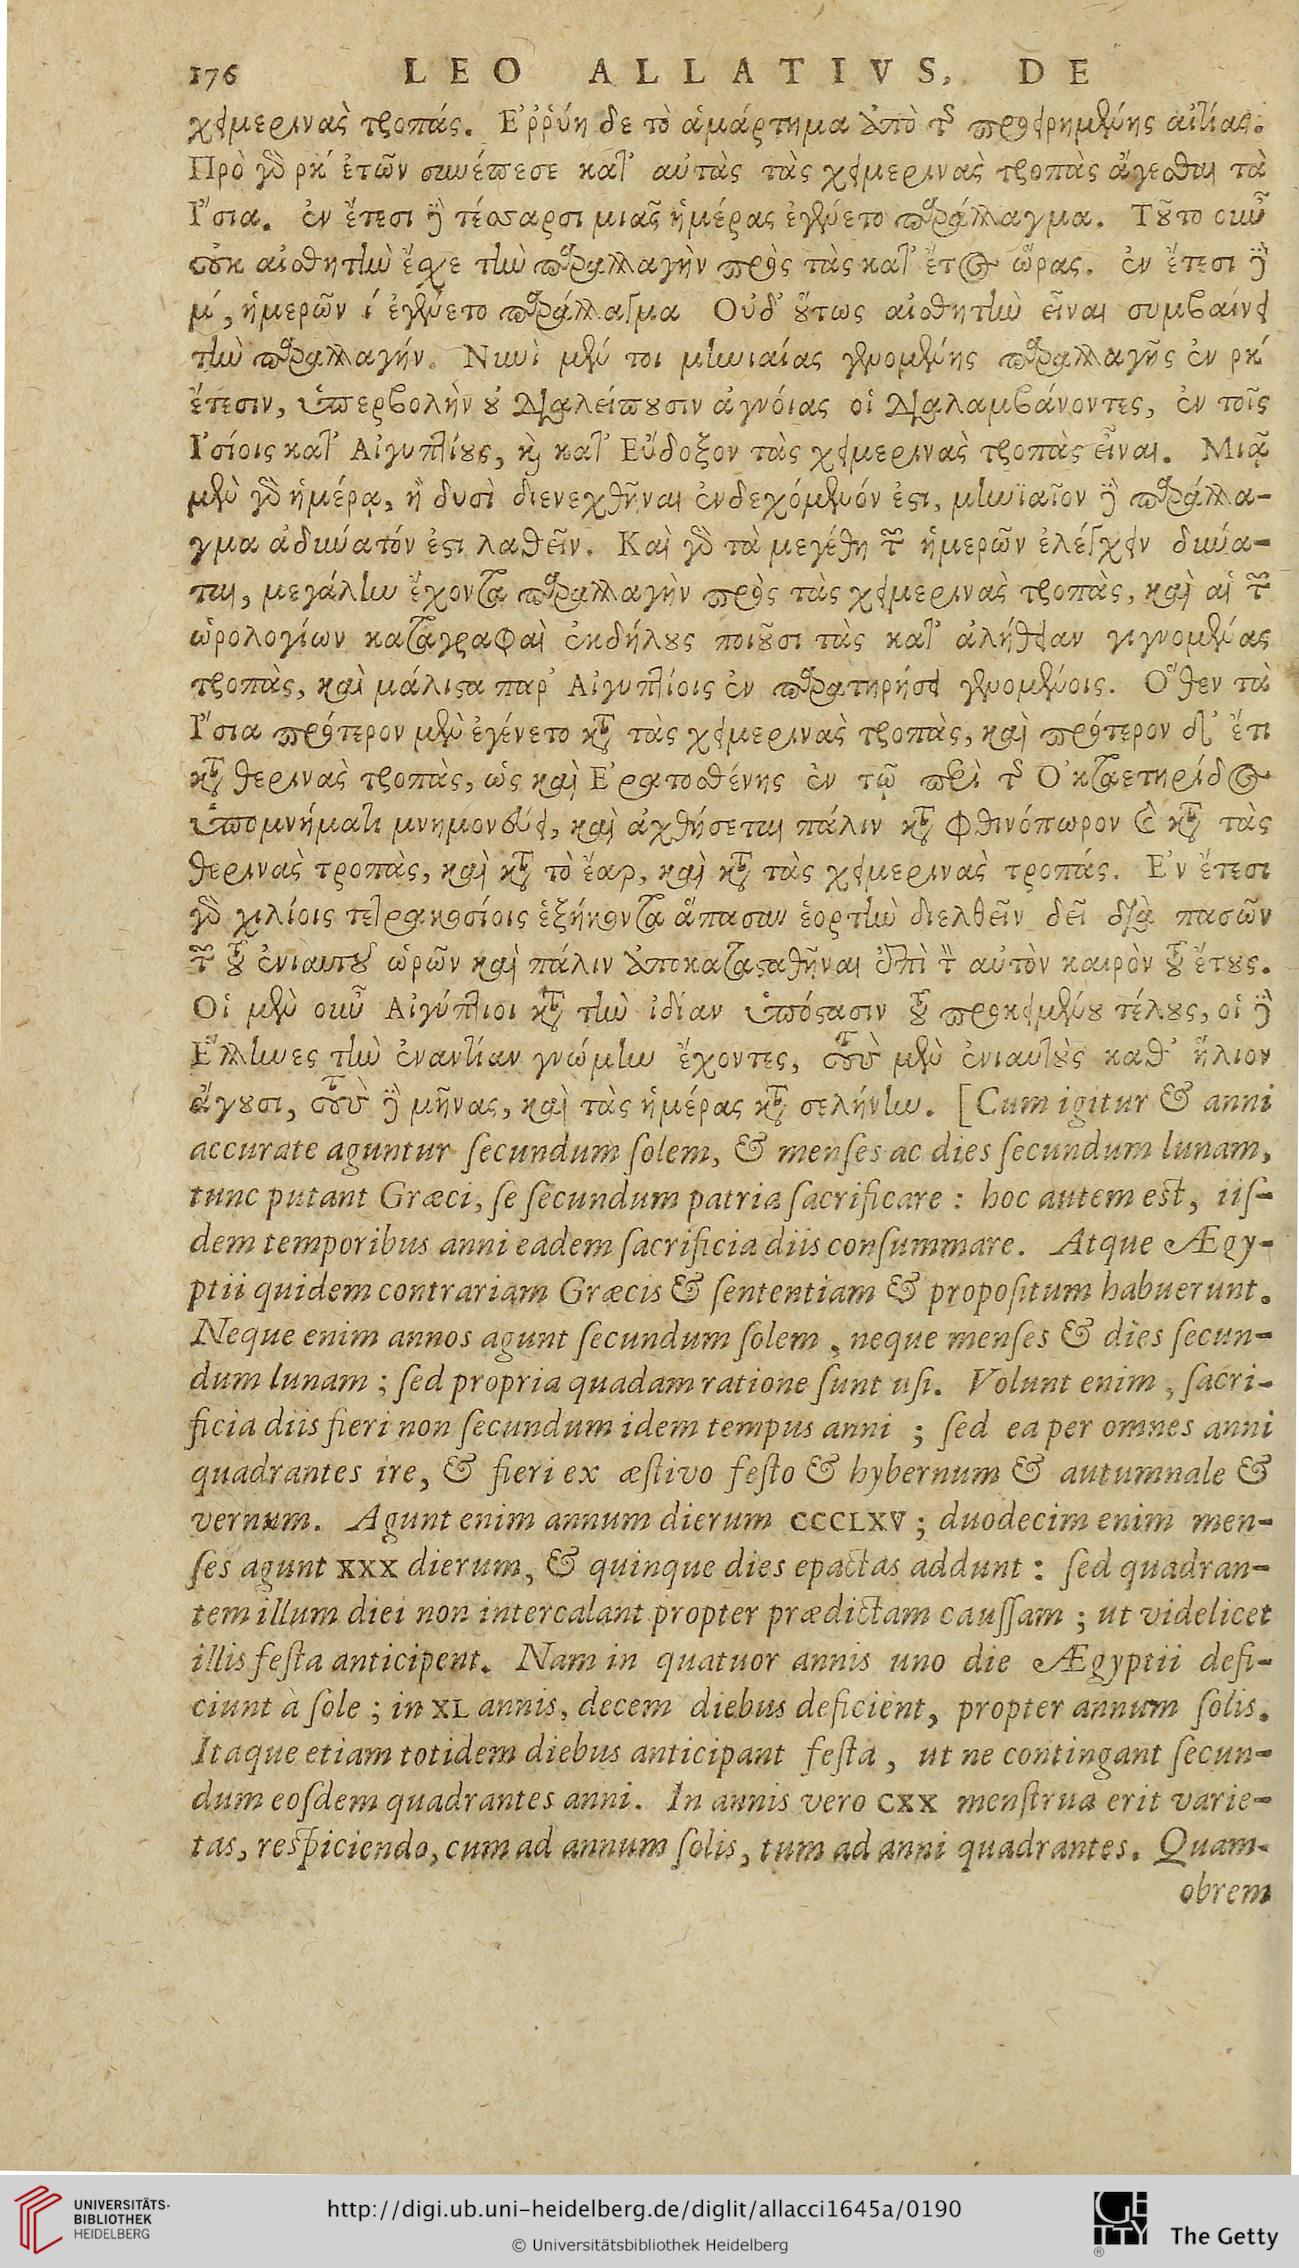 176 LEO ALLATIVS, DE
χειμερινὰς τροπάς. Ἐῤῥύη δε τὸ ἁμάρτημα ἀπὸ τῆς προειρημένης αἰτίας.
Πρὸ γὰρ ρκ´ ἐτῶν συνέπεσε κατ᾽ αὐτὰς τὰς χειμερινὰς τροπὰς ἄγεσθαι τὰ
Ἴσια. ἐν ἔτεσι δὲ τέσσαρσι μιᾶς ἡμέρας ἐγένετο παράλλαγμα. Τοῦτο οὖν
οὐκ αἰσθητὴν ἔσχε τὴν παραλλαγὴν πρὸς τὰς κατ᾽ ἔτος ὥρας. ἐν ἔτεσι δὲ
μ´, ἡμερῶν ί ἐγένετο παράλλαγμα Οὐδ᾽ οὕτως αἰσθητὴν εἶναι συμβαίνει
τὴν παραλλαγήν. Νυνὶ μέν τοι μηνιαίας γενομένης παραλλαγῆς ἐν ρκ´
ἔτεσιν, ὑπερβολὴν οὐ διαλείπουσιν ἀγνοίας οἱ διαλαμβάνοντες, ἐν τοῖς
Ἰσίοις κατ᾽ Αἰγυπτίους, καὶ κατ᾽ Εὔδοξον τὰς χειμερινὰς τροπὰς εἶναι. Μιᾷ
μὲν γὰρ ἡμέρᾳ, ἢ δυσὶ διενεχθῆναι ἐνδεχόμενόν ἐστι, μηνϊαῖον δὲ παράλλα-
γμα ἀδυνατόν ἐστι λαθεῖν. Καὶ γὰρ τὰ μεγέθη τῶν ἡμερῶν ἐλέγχειν δύνα-
ται, μεγάλην ἔχοντα παραλλαγὴν πρὸς τὰς χειμερινὰς τροπὰς, καὶ αἱ τῶν
ὡρολογίων καταγραφαὶ ἐκδήλους ποιοῦσι τὰς κατ᾽ ἀλήθειαν γιγνομένας
τροπὰς, καὶ μάλιστα παρ᾽ Αἰγυπτίοις ἐν παρατηρήσει γενομένοις. Ὅθεν τὰ
Ἴσια πρότερον μὲν ἐγένετο κατὰ τὰς χειμερινὰς τροπὰς, καὶ πρότερον δ᾽ ἔτι
κατὰ θερινὰς τροπὰς, ὡς καὶ Ἐρατοσθένης ἐν τῷ περὶ τῆς Ὀκταετηρίδος
ὑπομνήματι μνημονεύει, καὶ ἀχθήσεται πάλιν κατὰ φθινόπωρον καὶ κατὰ τὰς
θερινὰς τροπὰς, καὶ κατὰ τὸ ἔαρ, καὶ κατὰ τὰς χειμερινὰς τροπάς. Ἐν ἔτεσι
γὰρ χιλίοις τετρακοσίοις ἑξήκοντα ἅπασαν ἑορτὴν διελθεῖν δεῖ διὰ πασῶν
τῶν τοῦ ἐνιαυτοῦ ὡρῶν καὶ πάλιν ἀποκατασταθῆναι ἐπὶ τὸν αὐτὸν καιρὸν τοῦ ἔτους.
Οἱ μὲν οὖν Αἰγύπτιοι κατὰ τὴν ἰδίαν ὑπόστασιν τοῦ προκειμένου τέλους, οἱ δὲ
Ἕλληνες τὴν ἐναντίαν γνώμην ἔχοντες, τοὺς μὲν ἐνιαυτοὺς καθ᾽ ἥλιον
ἄγουσι, τοὺς δὲ μῆνας, καὶ τὰς ἡμέρας κατὰ σελήνην. [Cum igitur & anni
accurate aguntur ſecundum ſolem, & menſes ac dies ſecundum lunam,
tunc putant Græci, ſe ſecundum patria ſacrificare : hoc autem est, iiſ-
dem temporibus anni eadem ſacrificia diis conſummare. Atque Ægy-
ptii quidem contrariam Græcis & ſententiam & propoſitum habuerunt.
Neque enim annos agunt ſecundum ſolem, neque menſes & dies ſecun-
dum lunam ; ſed propria quadam ratione ſunt uſi. Volunt enim, ſacri-
ficia diis fieri non ſecundum idem tempus anni ; ſed ea per omnes anni
quadrantes ire, & fieri ex æſtivo feſto & hybernum & autumnale &
vernum. Agunt enim annum dierum CCCLXV ; duodecim enim men-
ſes agunt XXX dierum, & quinque dies epactas addunt : ſed quadran-
tem illum diei non intercalant propter prædictam cauſſam ; ut videlicet
illis feſta anticipent. Nam in quatuor annis uno die Ægyptii defi-
ciunt à ſole ; in XL annis, decem diebus deficient, propter annum ſolis.
Itaque etiam totidem diebus anticipant feſta, ut ne contingant ſecun-
dum eoſdem quadrantes anni. In annis vero CXX menſtrua erit varie-
tas, reſpiciendo, cum ad annum ſolis, tum ad anni quadrantes. Quam-
obrem
UNIVERSITÄTS-
BIBLIOTHEK
HEIDELBERG
http://digi.ub.uni-heidelberg.de/diglit/allacci1645a/0190
© Universitätsbibliothek Heidelberg
The Getty